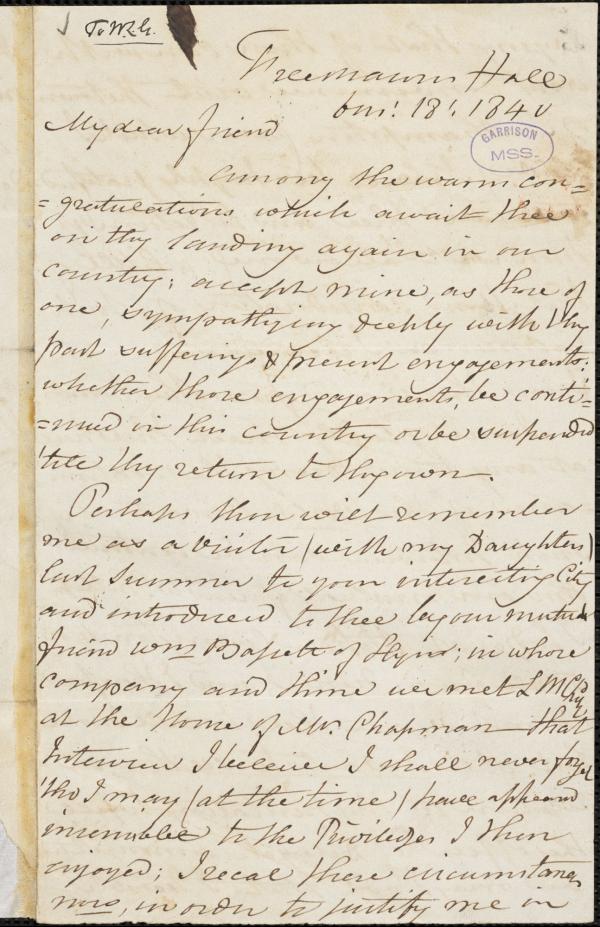 To W.L.G.
Freemasons Hall
18. 1840
GARRISON
MSS.
My dear friend
Among the warm con-
=gratulations which await thee
on thy landing again in our
country; accept mine, as those of
one, sympathizing deeply with thy
past sufferings & present engagements:
whether those engagements, be conti-
=nued in this country or be suspended
'till thy return to thy own.
Perhaps thou wilt remember
me as a visitor (with my Daughters)
last Summer to your interesting City
and introduced to thee by our mutual
friend Wm Bassett of Lynn; in whose
company and thine we met L M Child
at the Home of Mrs. Chapman—that
Interview I believe I shall never forget
'tho I may (at the time) have appeard
insensible to the Priviledges I then
enjoyed; I recal these circumstances
now, in order to justify me in